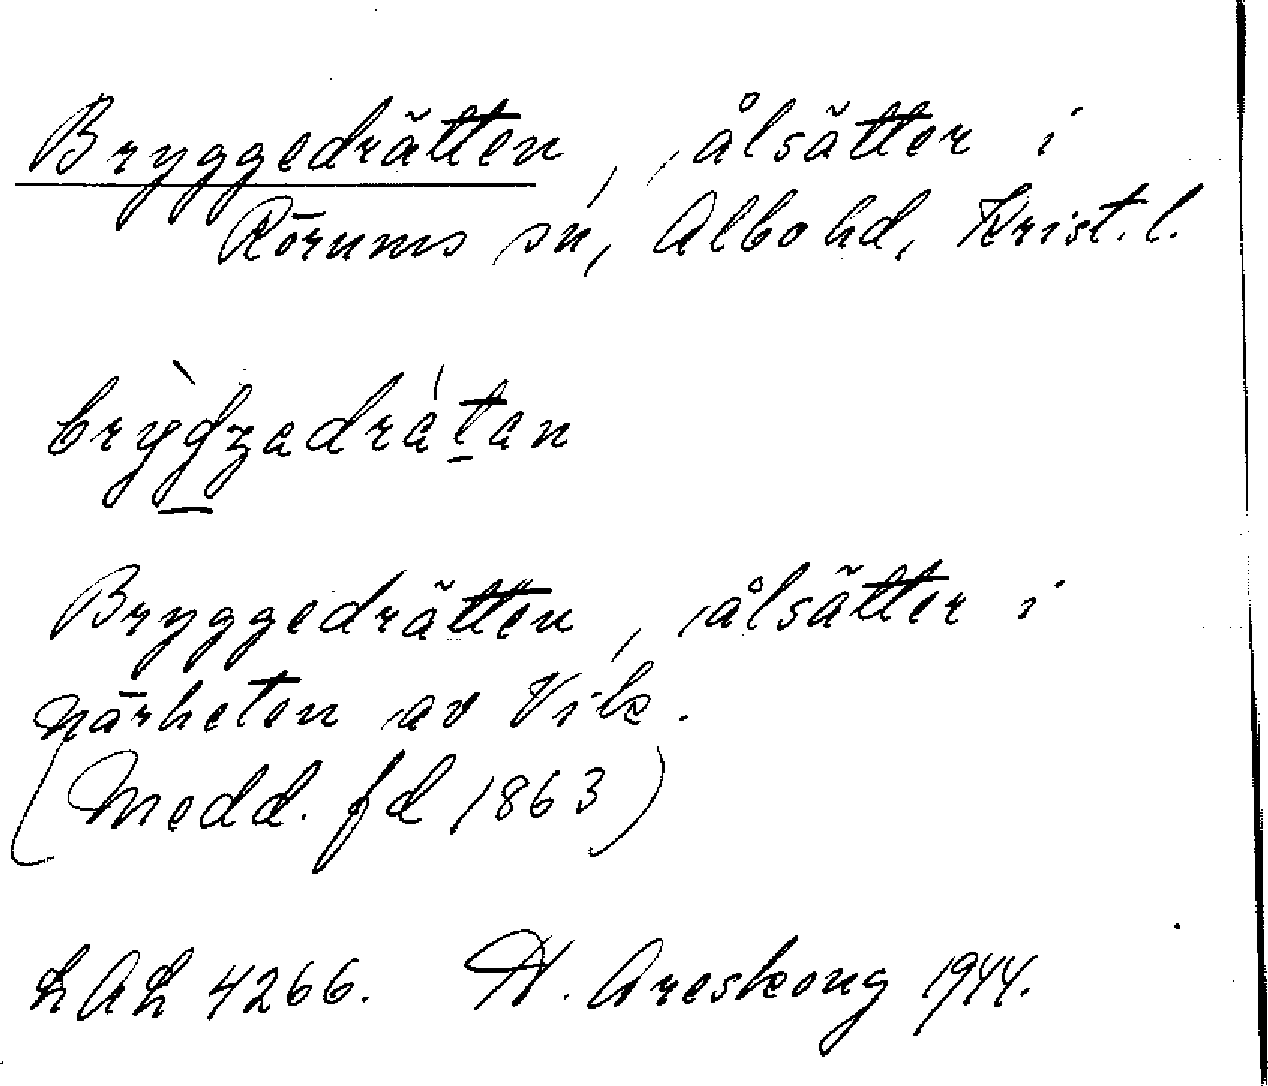 Bryggedrätten, ålsätter i
Rörums sn, Albo hd, Krist. l.
Bryggedrätten, ålsätter i
närheten av Vik.
(Medd. fd 1863)
LAL 4266. N. Areskoug 1944.